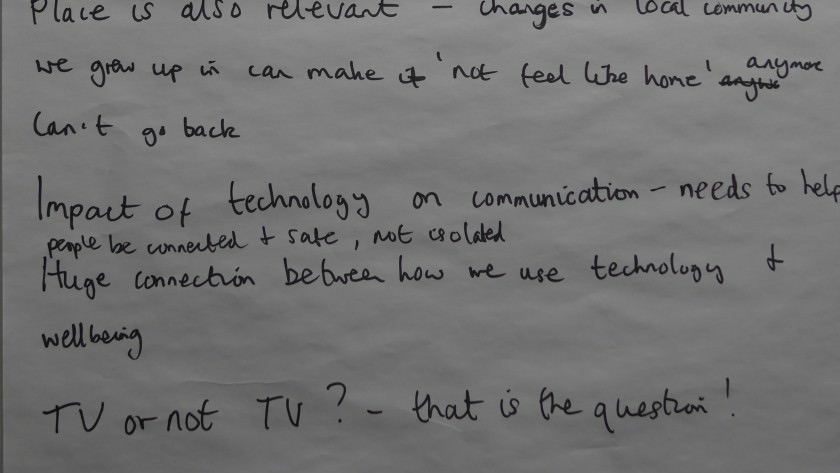 Place is also relevant – changes in local community
we grew up in can make it 'not feel like home' anymore
Can't go back
Impact of technology on communication – needs to help
people be connected + safe, not isolated
Huge connection between how we use technology +
wellbeing
TV or not TV? – that is the question!